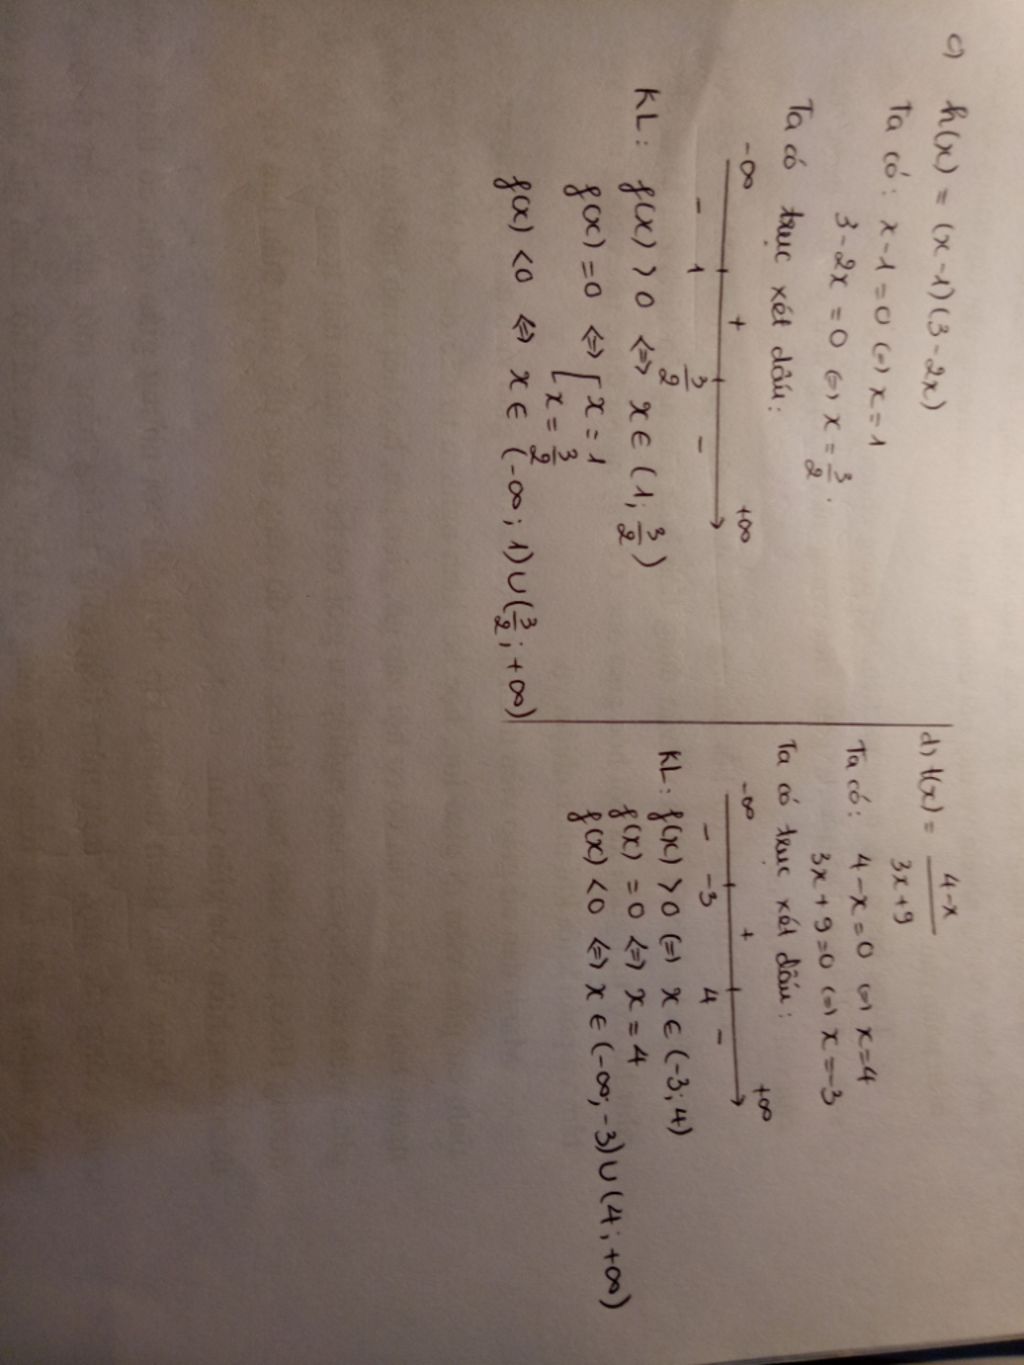 c) h(x) = (x-1)(3-2x)
Ta có: x-1=0 (=) x=1
3-2x=0 (=) x = 3/2.
Ta có trục xét dấu:
-∞ +∞
- 1 + 3/2 -
KL: f(x) > 0 <=> x ∈ (1; 3/2)
f(x) = 0 <=> [ x = 1
x = 3/2
f(x) < 0 <=> x ∈ (-∞; 1) ∪ (3/2; +∞)
d) t(x) = 4-x / 3x+9
Ta có: 4-x=0 (=) x=4
3x+9=0 (=) x=-3
Ta có trục xét dấu:
-∞ +∞
- -3 + 4 -
KL: f(x) > 0 (=) x ∈ (-3; 4)
f(x) = 0 <=> x = 4
f(x) < 0 <=> x ∈ (-∞; -3) ∪ (4; +∞)